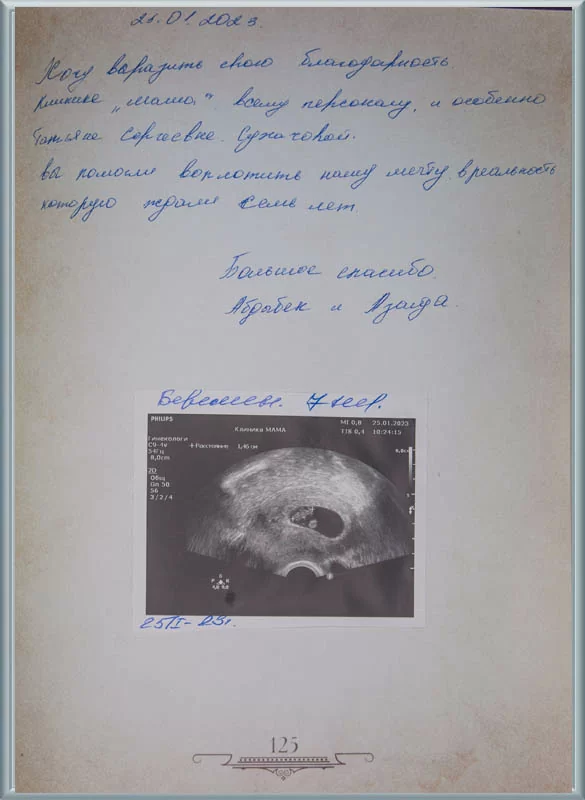 25.01.2023.
Хочу выразить свою благодарность
клинике „мама" всему персоналу, и особенно
Татьяне Сергеевне. Сухачовой.
вы помогли воплотить нашу мечту, в реальность
которую ждали семь лет.
Большое спасибо.
Абдыбек и Азаида.
Беременн. 7 нед.
PHILIPS
Клиника МАМА
MI 0,8 25.01.2023
TIS 0,4 10:24:15
Гинекологи
C9-4v
54Гц
8,0cm
+ Расстояние 1,45 см
8,0см
2D
Общ
Дп 50
56
3/2/4
25/I-23г.
125